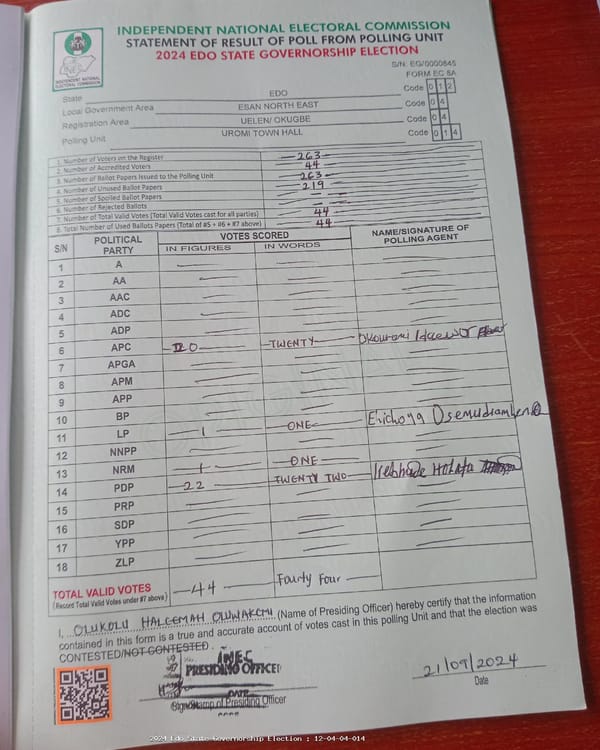 INDEPENDENT NATIONAL ELECTORAL COMMISSION
STATEMENT OF RESULT OF POLL FROM POLLING UNIT
2024 EDO STATE GOVERNORSHIP ELECTION
INDEPENDENT NATIONAL ELECTORAL COMMISSION
S/N: EG/0000845
FORM EC 8A
State EDO Code 0 1 2
Local Government Area ESAN NORTH EAST Code 0 4
Registration Area UELEN/ OKUGBE Code 0 4
Polling Unit UROMI TOWN HALL Code 0 1 4
1. Number of Voters on the Register 263
2. Number of Accredited Voters 44
3. Number of Ballot Papers Issued to the Polling Unit 263
4. Number of Unused Ballot Papers 219
5. Number of Spoiled Ballot Papers
6. Number of Rejected Ballots
7. Number of Total Valid Votes (Total Valid Votes cast for all parties) 44
8. Total Number of Used Ballots Papers (Total of #5 + #6 + #7 above) 44
S/N POLITICAL PARTY VOTES SCORED NAME/SIGNATURE OF POLLING AGENT
IN FIGURES IN WORDS
1 A
2 AA
3 AAC
4 ADC
5 ADP
6 APC 20 TWENTY
7 APGA
8 APM
9 APP
10 BP
11 LP 1 ONE
12 NNPP
13 NRM 1 ONE
14 PDP 22 TWENTY TWO
15 PRP
16 SDP
17 YPP
18 ZLP
TOTAL VALID VOTES 44 Fourty Four
(Record Total Valid Votes under #7 above)
I, OLUKOLU HALEEMAH OLUWAKEMI (Name of Presiding Officer) hereby certify that the information
contained in this form is a true and accurate account of votes cast in this polling Unit and that the election was
CONTESTED/NOT CONTESTED.
INEC
PRESIDING OFFICER
DATE
Sign/Stamp of Presiding Officer
21/09/2024
Date
2024 Edo State Governorship Election : 12-04-04-014